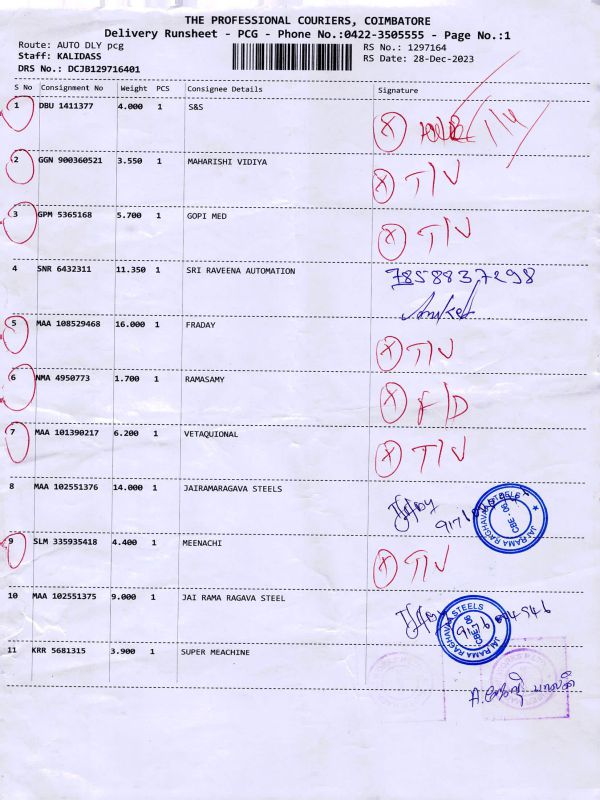 THE PROFESSIONAL COURIERS, COIMBATORE
Delivery Runsheet - PCG - Phone No.:0422-3505555 - Page No.:1
Route: AUTO DLY pcg
Staff: KALIDASS
DRS No.: DCJB129716401
RS No.: 1297164
RS Date: 28-Dec-2023
S No Consignment No Weight PCS Consignee Details Signature
1 DBU 1411377 4.000 1 S&S
2 GGN 900360521 3.550 1 MAHARISHI VIDIYA T/V
3 GPM 5365168 5.700 1 GOPI MED T/V
4 SNR 6432311 11.350 1 SRI RAVEENA AUTOMATION 7858837298
5 MAA 108529468 16.000 1 FRADAY T/V
6 NMA 4950773 1.700 1 RAMASAMY F/D
7 MAA 101390217 6.200 1 VETAQUIONAL T/V
8 MAA 102551376 14.000 1 JAIRAMARAGAVA STEELS
JAI RAMA RAGHAVAA STEELS
CBE - 06
9 SLM 335935418 4.400 1 MEENACHI T/V
10 MAA 102551375 9.000 1 JAI RAMA RAGAVA STEEL
JAI RAMA RAGHAVAA STEELS
CBE - 06
11 KRR 5681315 3.900 1 SUPER MEACHINE